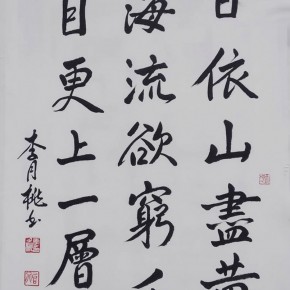 日依山盡黃
海流欲窮千
目更上一層
李月桃书